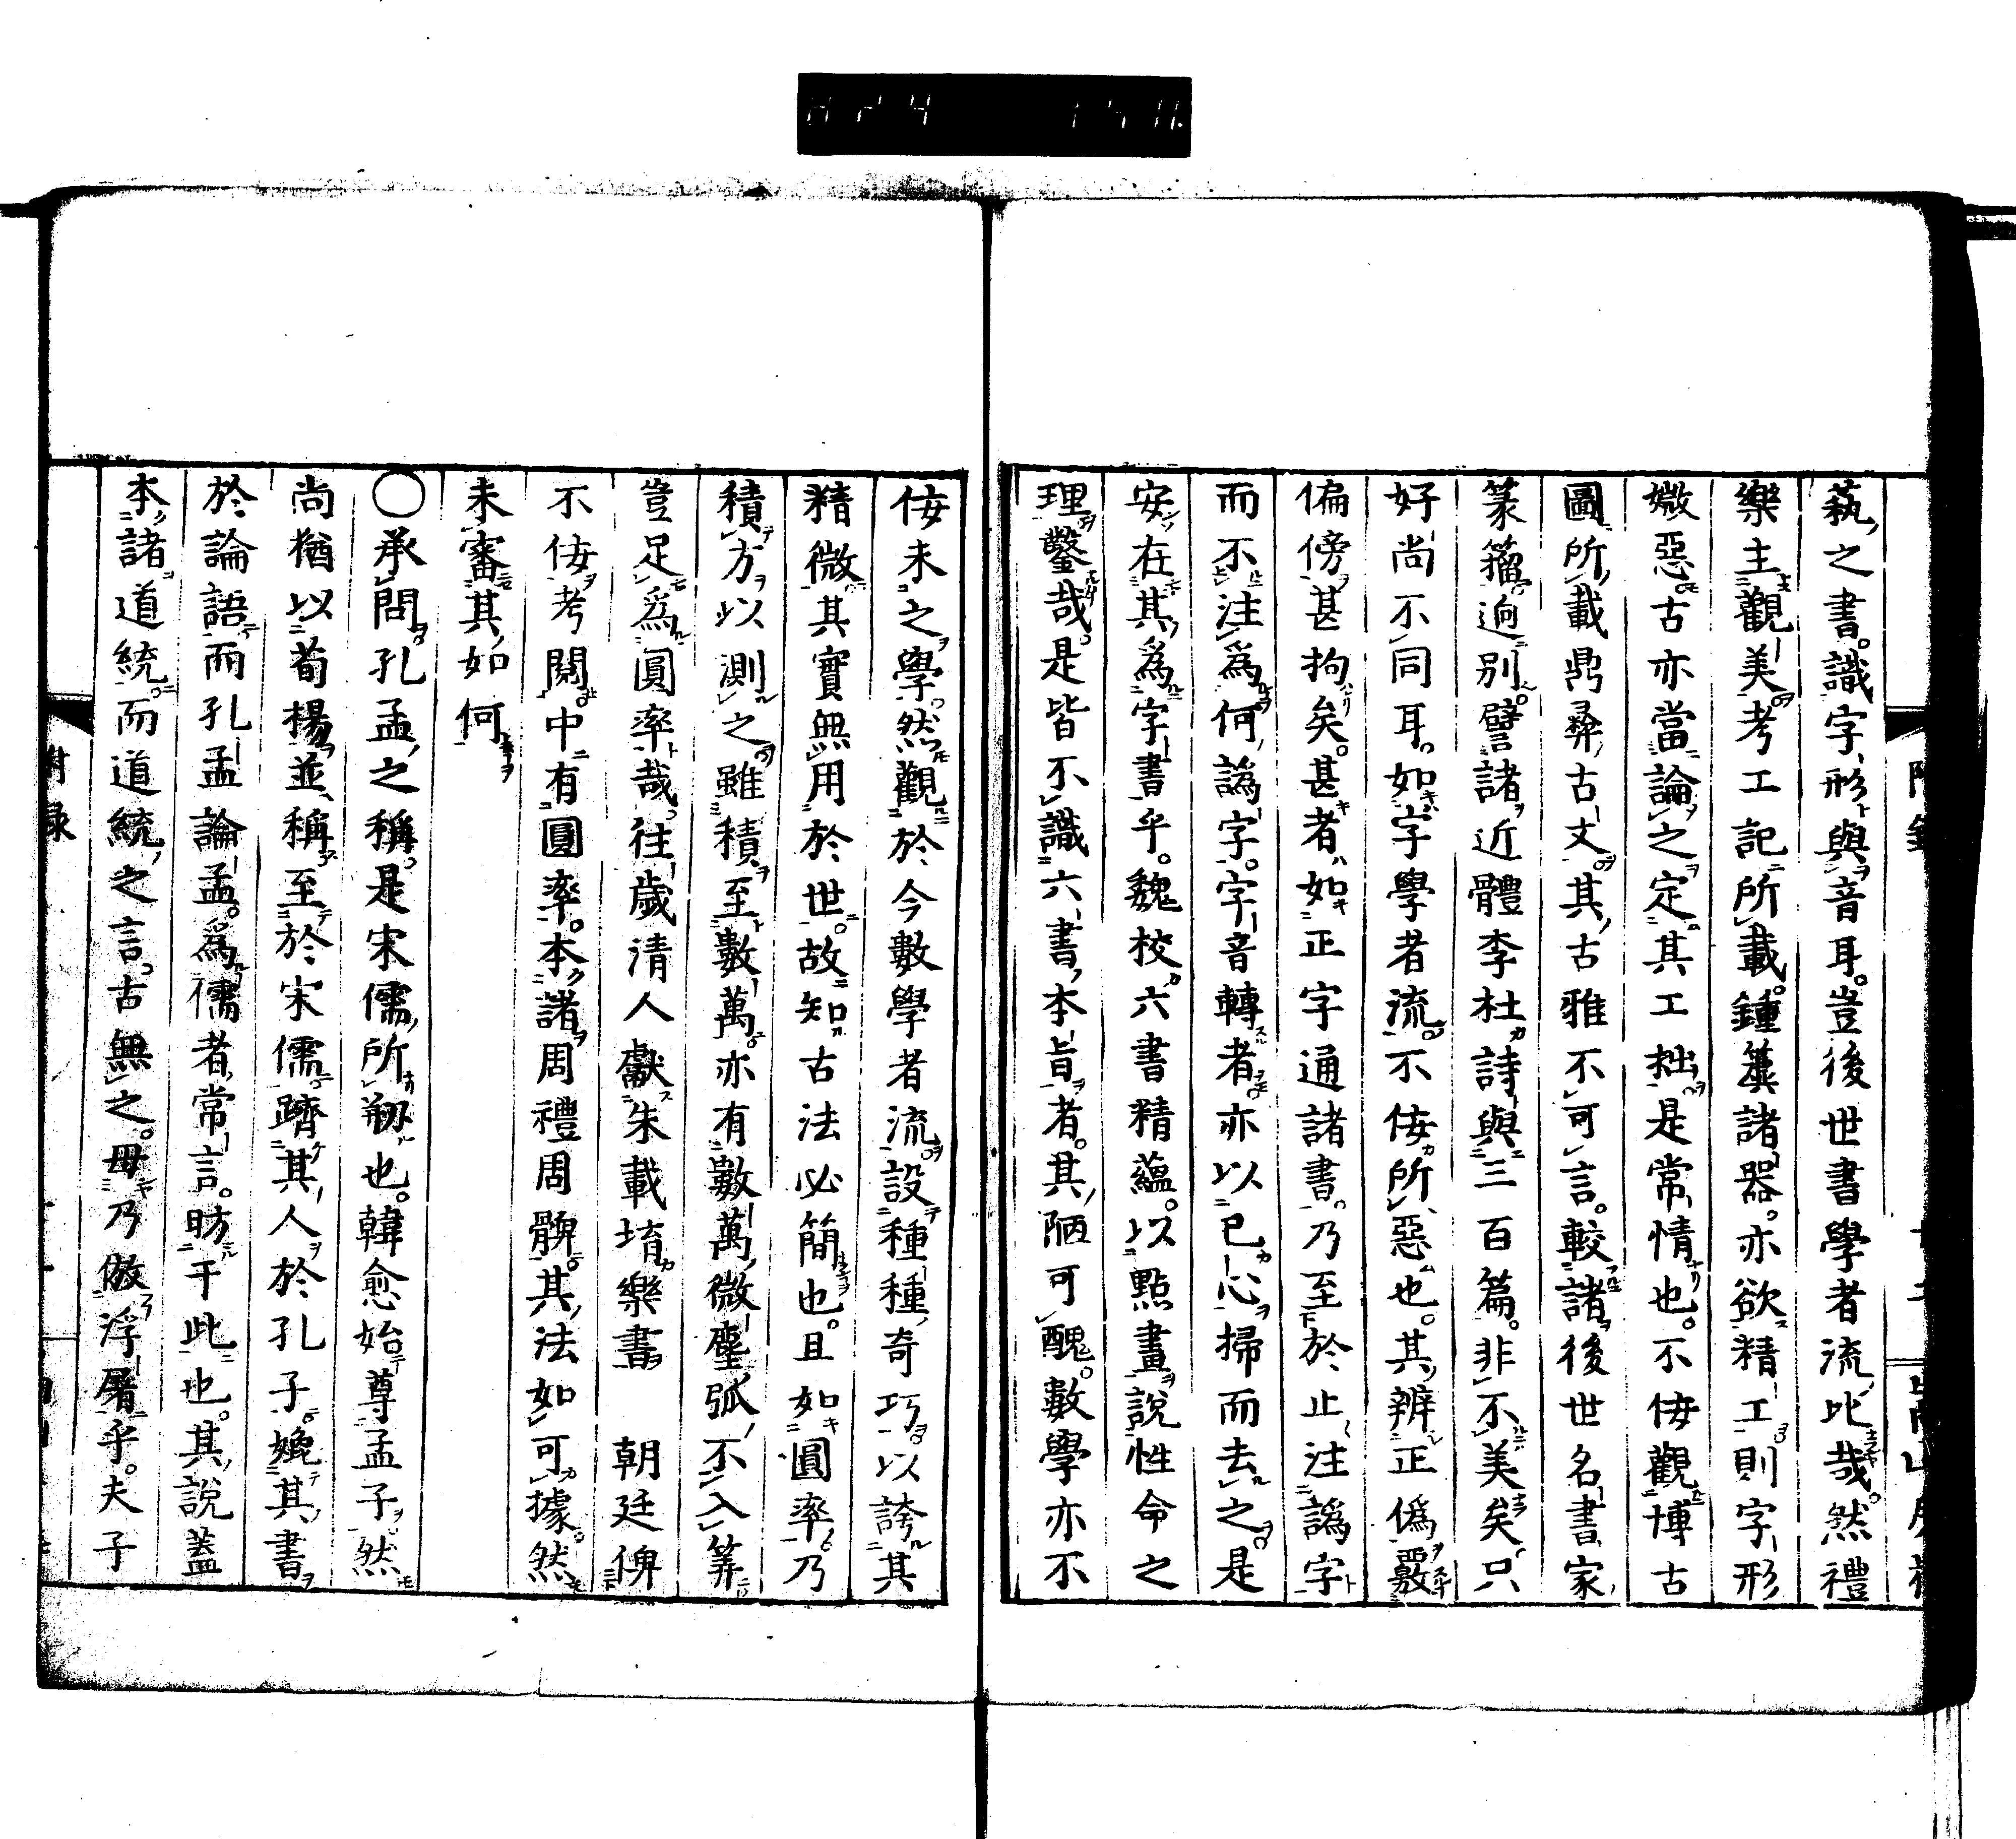 蓺之書。識字形與音耳。豈後世書學者流比哉。然禮
樂主觀美。考工記所載。鍾簴諸器。亦欲精工。則字形
媺惡。古亦當論之定。其工拙是常情也。不佞觀博古
圖所載鼎彝古文。其古雅不可言。較諸後世名書家
篆籀逈別。譬諸近體李杜詩與三百篇。非不美矣。只
好尚不同耳。如字學者流。不佞所惡也。其辨正僞覈
偏傍。甚拘矣。甚者如正字通諸書。乃至於止注譌字
而不注爲何譌字。字音轉者。亦以已心掃而去之。是
安在其爲字書乎。魏校六書精蘊。以點畫説性命之
理。鑿哉。是皆不識六書本旨者。其陋可醜。數學亦不
佞未之學。然觀於今數學者流。設種種奇巧。以誇其
精微。其實無用於世。故知古法必簡也。且如圓率。乃
積方以測之。雖積至數萬。亦有數萬微塵弧。不入筭
豈足爲圓率哉。往歲清人獻朱載堉樂書　朝廷俾
不佞考閱。中有圓率。本諸周禮周髀。其法如可據。然
未審其如何
〇承問。孔孟之稱。是宋儒所剏也。韓愈始尊孟子。然
尚猶以荀揚並稱。至於宋儒。躋其人於孔子。媲其書
於論語。而孔孟論孟。爲儒者常言。昉于此也。其説蓋
本諸道統。而道統之言。古無之。毋乃倣浮屠乎。夫子
附録